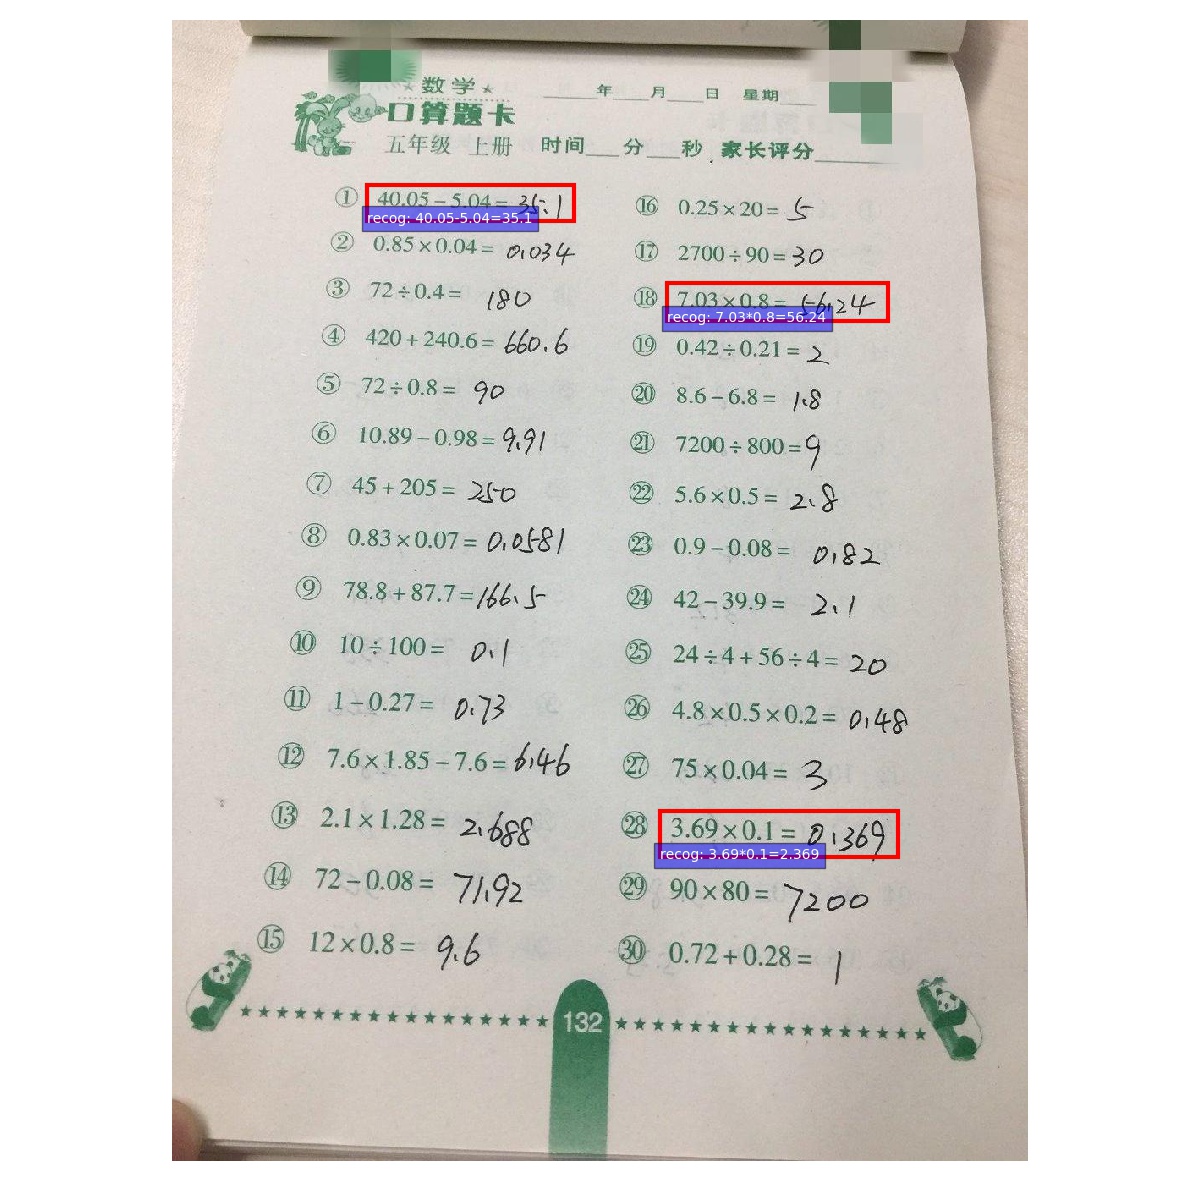 ★ 数学 ★
口算题卡
五年级 上册
____年____月____日 星期____
时间___分___秒 家长评分______
① 40.05－5.04＝35.1
recog: 40.05-5.04=35.1
② 0.85×0.04＝0.034
③ 72÷0.4＝180
④ 420＋240.6＝660.6
⑤ 72÷0.8＝90
⑥ 10.89－0.98＝9.91
⑦ 45＋205＝250
⑧ 0.83×0.07＝0.0581
⑨ 78.8＋87.7＝166.5
⑩ 10÷100＝0.1
⑪ 1－0.27＝0.73
⑫ 7.6×1.85－7.6＝6.46
⑬ 2.1×1.28＝2.688
⑭ 72－0.08＝71.92
⑮ 12×0.8＝9.6
⑯ 0.25×20＝5
⑰ 2700÷90＝30
⑱ 7.03×0.8＝56.24
recog: 7.03*0.8=56.24
⑲ 0.42÷0.21＝2
⑳ 8.6－6.8＝1.8
㉑ 7200÷800＝9
㉒ 5.6×0.5＝2.8
㉓ 0.9－0.08＝0.82
㉔ 42－39.9＝2.1
㉕ 24÷4＋56÷4＝20
㉖ 4.8×0.5×0.2＝0.48
㉗ 75×0.04＝3
㉘ 3.69×0.1＝0.369
recog: 3.69*0.1=2.369
㉙ 90×80＝7200
㉚ 0.72＋0.28＝1
132